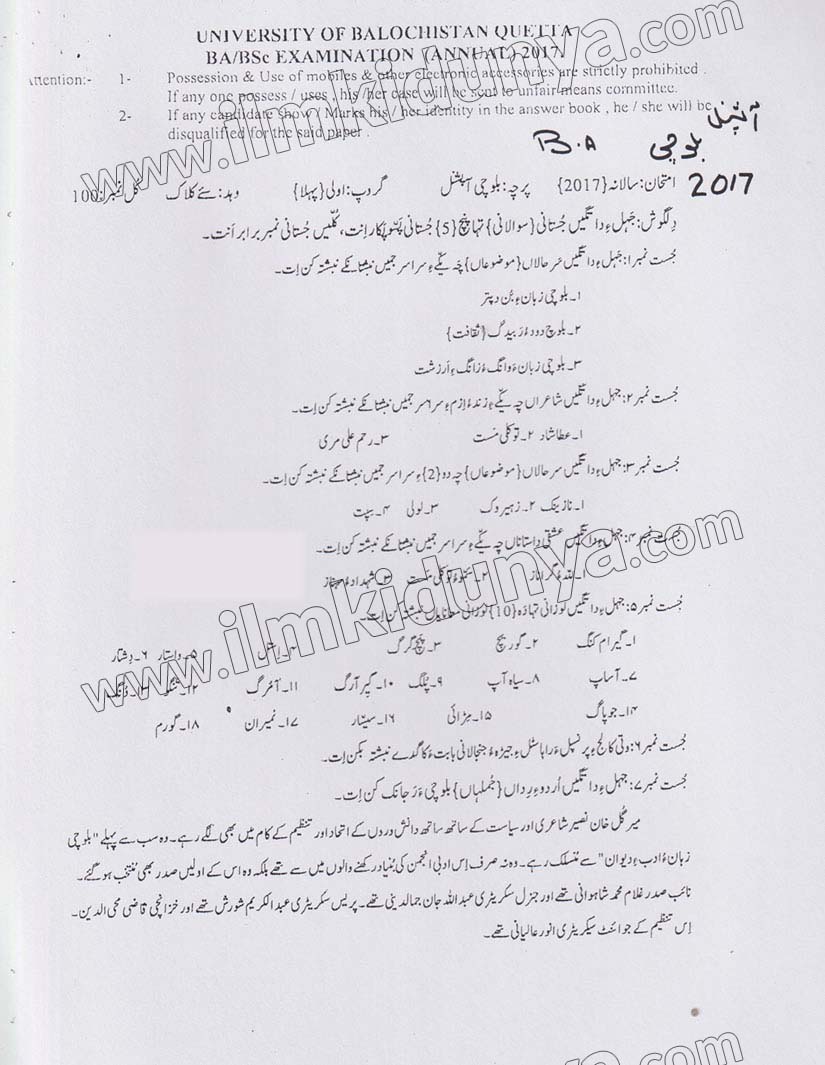 UNIVERSITY OF BALOCHISTAN QUETTA
BA/BSc EXAMINATION (ANNUAL) 2017.
Attention:- 1- Possession & Use of mobiles & other electronic accessories are strictly prohibited .
If any one possess / uses , his /her case will be sent to unfair means committee.
2- If any candidate show / Marks his / her identity in the answer book , he / she will be
disqualified for the said paper .
B.A بلوچی آپشنل
2017
امتحان: سالانہ {2017} پرچہ: بلوچی آپشنل گروپ: اولی {پہلا} وہد: سئے کلاک کل نمبر: 100
دلگوش: جہل ءِ داتگیں جُستانی {سوالانی} تہا پنچ {5} جُستانی پَسّو پکار اِنت، کُلّیں جستانی نمبر برابر اَنت۔
جست نمبر ۱: جہل ءِ داتگیں سرحالاں {موضوعاں} چہ یکّے ءِ سراسرجمیں نبشتانکے نبشتہ کن اِت۔
۱۔ بلوچی زبان ءِ بُن دپتر
۲۔ بلوچ دود ءُ ربیدگ {ثقافت}
۳۔ بلوچی زبان ءَ وانگ ءُ زانگ ءِ اَرزشت
جست نمبر ۲: جہل ءِ داتگیں شاعراں چہ یکّے ءِ زند ءُ اِزم ءِ سرا سرجمیں نبشتانکے نبشتہ کن اِت۔
۱۔ عطا شاد ۲۔ توکلی مست ۳۔ رحم علی مری
جست نمبر ۳: جہل ءِ داتگیں سرحالاں {موضوعاں} چہ دو {2} ءِ سراسرجمیں نبشتانکے نبشتہ کن اِت۔
۱۔ نازینک ۲۔ زہیروک ۳۔ لولی ۴۔ سپت
جست نمبر ۴: جہل ءِ داتگیں عشقی داستاناں چہ یکّے ءِ سراسرجمیں نبشتانکے نبشتہ کن اِت۔
۱۔ للہ ءُ گراناز ۲۔ سمّو ءُ توکلی مست ۳۔ شہداد ءُ مہناز
جست نمبر ۵: جہل ءِ داتگیں لوزانی تہا دہ {10} لوزانی معنایاں نبشتہ کن اِت۔
۱۔ گیرام کنگ ۲۔ گوریچ ۳۔ پنچ گرگ ۴۔ ۵۔ داستار ۶۔ دشتار
۷۔ آساپ ۸۔ سیاہ آپ ۹۔ پُلگ ۱۰۔ گیر آرگ ۱۱۔ ۱۲۔ ۱۳۔
۱۴۔ جوپاگ ۱۵۔ مِزائی ۱۶۔ سیتار ۱۷۔ نمیران ۱۸۔ گورم
جست نمبر ۶: وتی کالج ءِ پرنسپل ءَ را ہاسٹل ءِ جیڑہ ءُ جنجالانی بابت ءُ کاگدے نبشتہ بکن اِت۔
جست نمبر ۷: جہل ءِ داتگیں اُردو ءِ رِداں {جُملہاں} بلوچی ءَ رجانک کن اِت۔
میر گل خان نصیر شاعری اور سیاست کے ساتھ ساتھ دانش وردوں کے اتحاد اور تنظیم کے کام میں بھی لگے رہے۔ وہ سب سے پہلے "بلوچی
زبان ءُ ادب ءِ دیوان" سے منسلک رہے۔ وہ نہ صرف اِس ادبی انجمن کی بنیاد رکھنے والوں میں سے تھے بلکہ وہ اس کے اولیں صدر بھی مُنتخب ہو گئے۔
نائب صدر غلام محمد شاہوانی تھے اور جنرل سکریٹری عبداللہ جان جمالدینی تھے۔ پریس سکریٹری عبدالکریم شورش تھے اور خزانچی قاضی محی الدین۔
اِس تنظیم کے جوائنٹ سیکریٹری انور عالیانی تھے۔
www.ilmkidunya.com
www.ilmkidunya.com
www.ilmkidunya.com